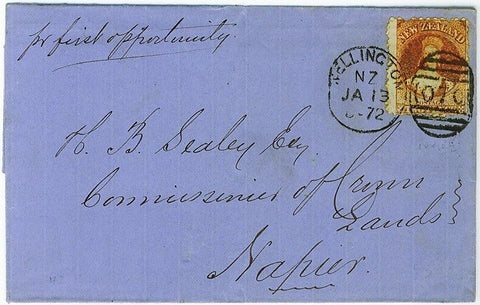 pr first opportunity.
NEW ZEALAND
WELLINGTON
NZ
JA 13
72
H. B. Sealey Esq
Commissioner of Crown
Lands
Napier.